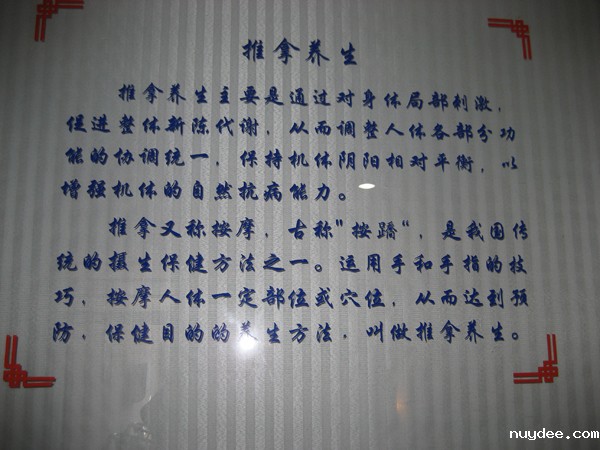 推拿养生
推拿养生主要是通过对身体局部刺激，
促进整体新陈代谢，从而调整人体各部分功
能的协调统一，保持机体阴阳相对平衡，以
增强机体的自然抗病能力。
推拿又称按摩，古称"按蹻"，是我国传
统的摄生保健方法之一。运用手和手指的技
巧，按摩人体一定部位或穴位，从而达到预
防，保健目的的养生方法，叫做推拿养生。
nuydee.com